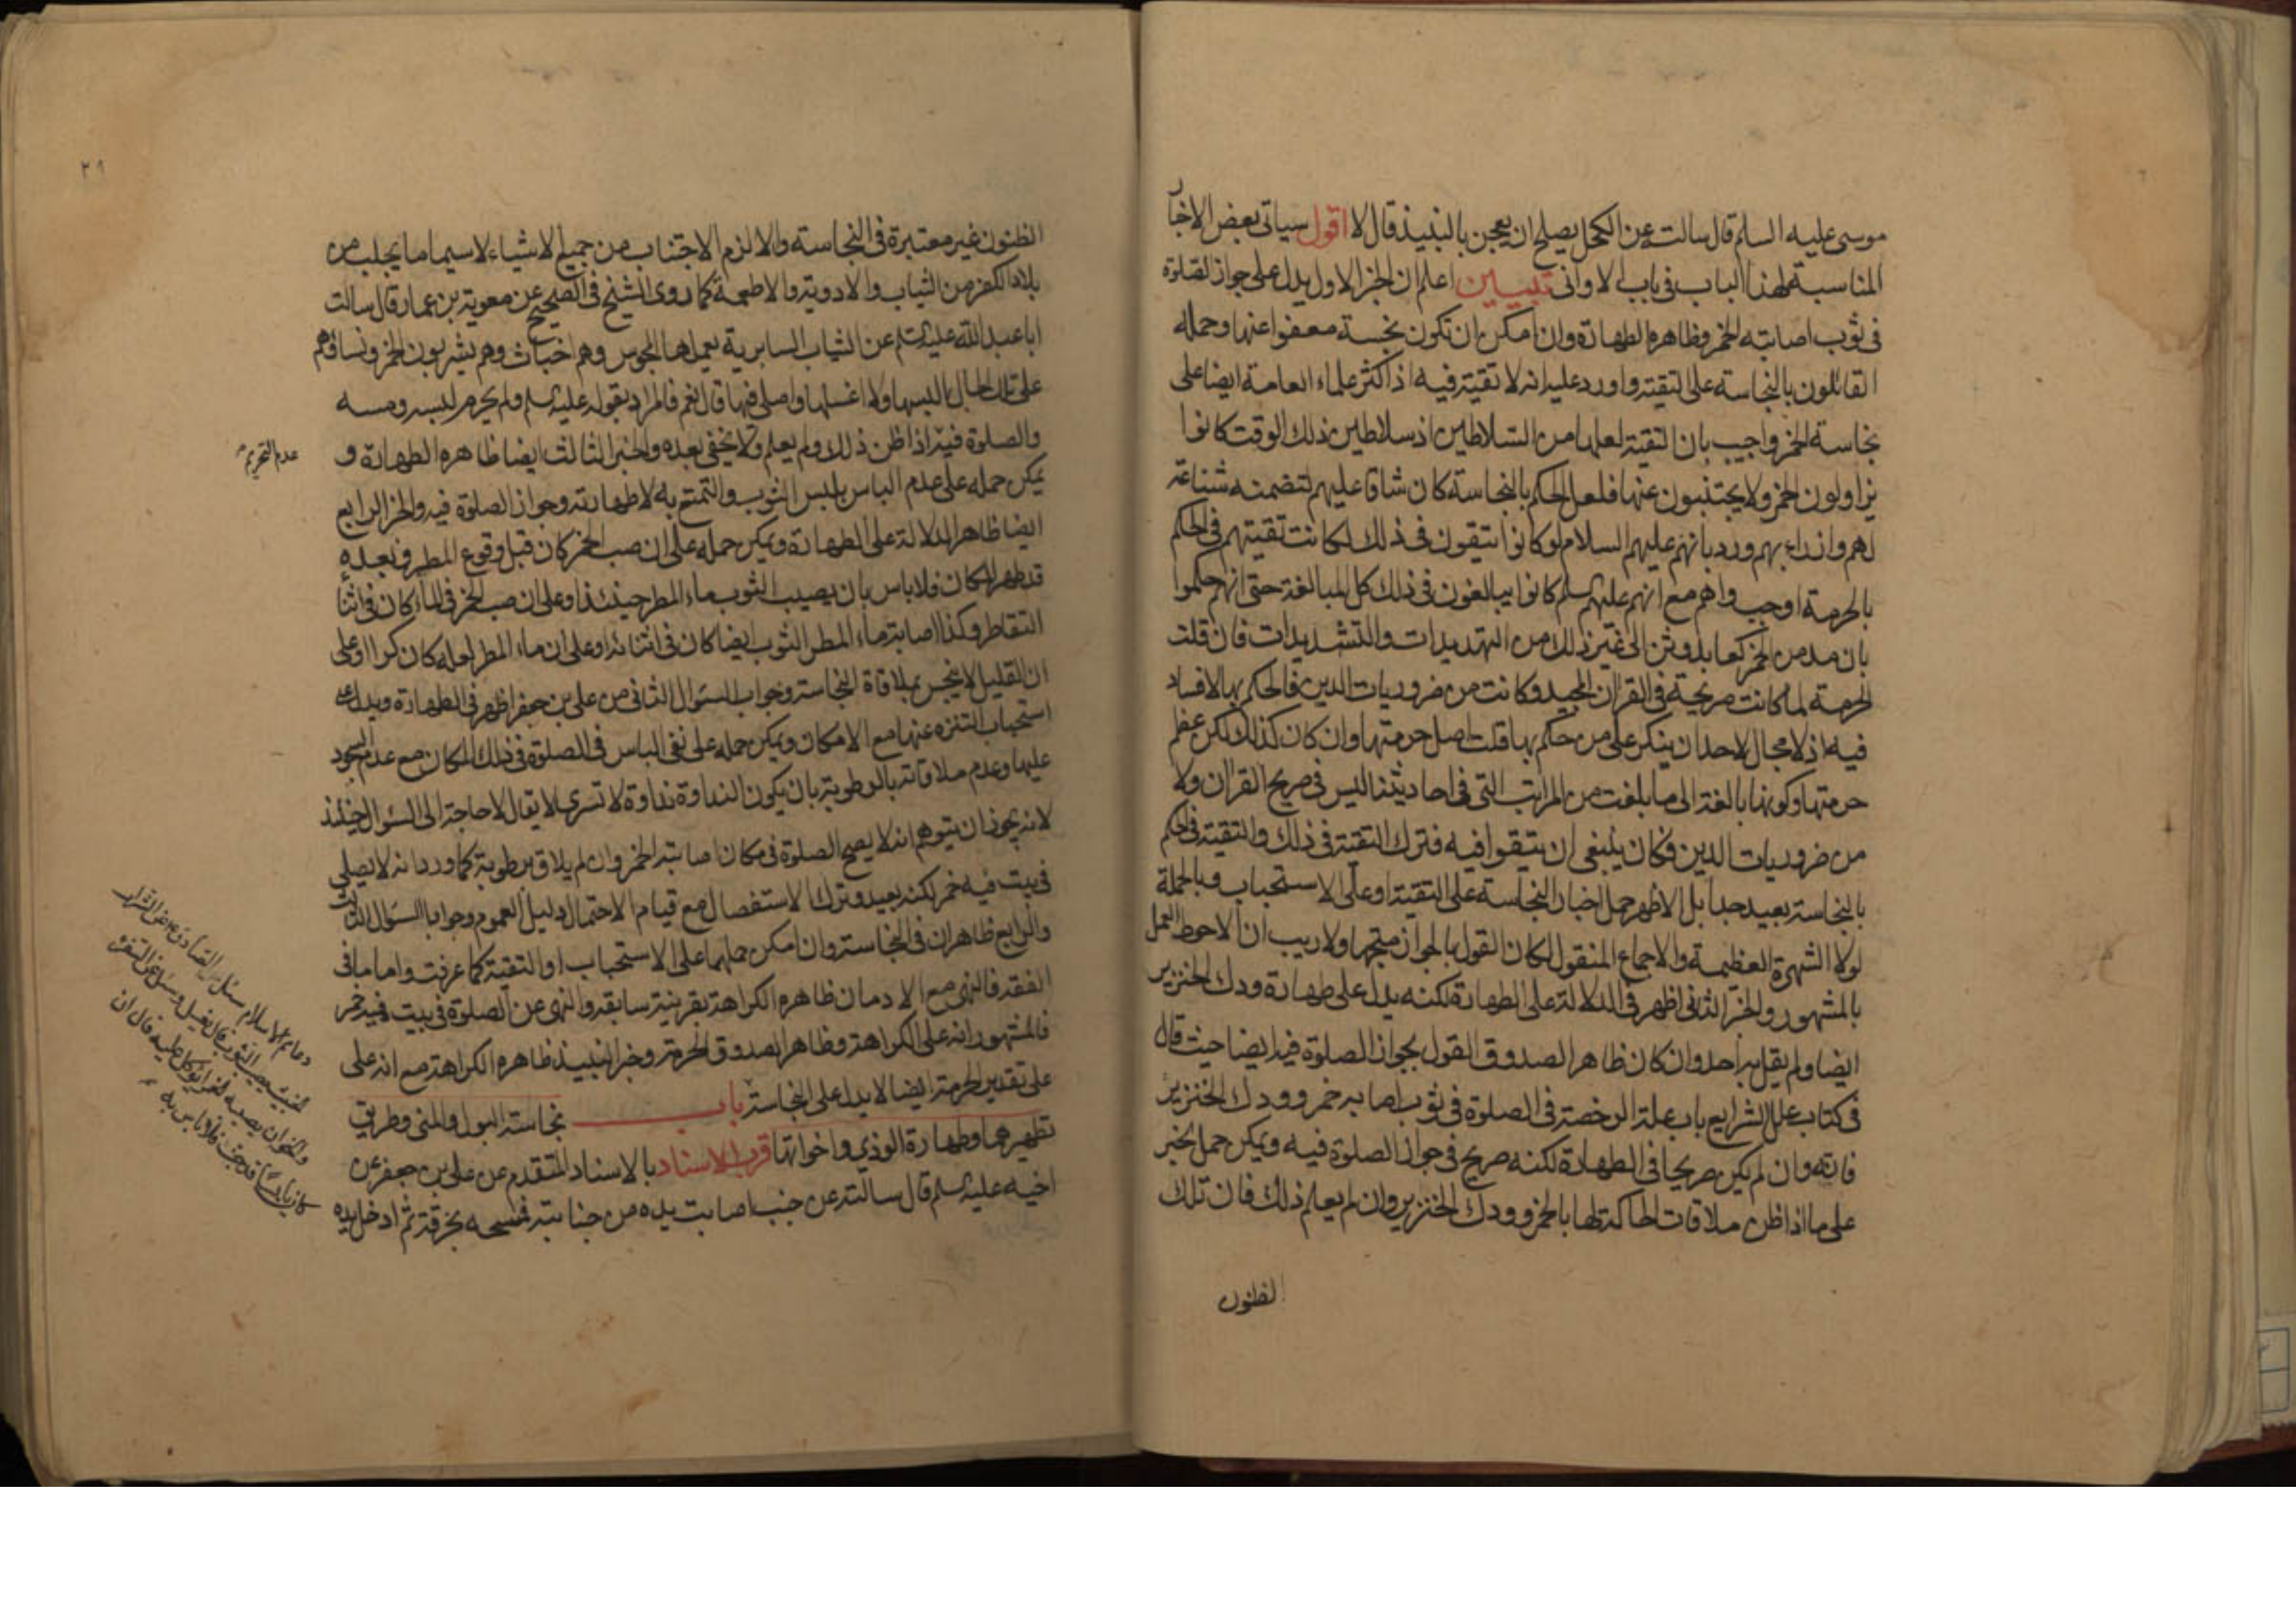 موسى عليه السلم قال سالته عن الكحل يصلح ان يعجن بالنبيذ قال لا اقول سياتى بعض الاخبار
المناسبة لهذا الباب فى باب الاوانى تبيين اعلم ان الخبر الاول يدل على جواز الصلوة
فى ثوب اصابته الخمر وظاهره الطهارة وان امكن ان تكون نجسة معفوا عنها وحمله
القائلون بالنجاسة على التقية واورد عليه انه لا تقية فيه اذ اكثر علماء العامة ايضا على
نجاسة الخمر واجيب بان التقية لعلها من السلاطين اذ سلاطين ذلك الوقت كانوا
يزاولون الخمر ولا يجتنبون عنها فلعل الحكم بالنجاسة كان شاقا عليهم لتضمنه شناعة
لهم وازراء بهم ورد بانهم عليهم السلام لو كانوا يتقون فى ذلك لكانت تقيتهم فى الحكم
بالحرمة اوجب واهم مع انهم عليهم السلم كانوا يبالغون فى ذلك كل المبالغة حتى انهم حكموا
بان مدمن الخمر كعابد وثن الى غير ذلك من التهديدات والتشديدات فان قلت
الحرمة لما كانت صريحة فى القران المجيد وكانت من ضروريات الدين فالحكم بها لا فساد
فيه اذ لا مجال لاحد ان ينكر على من حكم بها قلت اصل حرمتها وان كان كذلك لكن عظم
حرمتها وكونها بالغة الى ما بلغت من المراتب التى فى احاديثنا ليس فى صريح القران ولا
من ضروريات الدين فكان ينبغى ان يتقوا فيه فترك التقية فى ذلك والتقية فى الحكم
بالنجاسة بعيد جدا بل الاظهر حمل اخبار النجاسة على التقية او على الاستحباب وبالجملة
لولا الشهرة العظيمة والاجماع المنقول لكان القول بالجواز متجها ولا ريب ان الاحوط العمل
بالمشهور والخبر الثانى اظهر فى الدلالة على الطهارة لكنه يدل على طهارة ودك الخنزير
ايضا ولم يقل به احد وان كان ظاهر الصدوق القول بجواز الصلوة فيه ايضا حيث قال
فى كتاب علل الشرايع باب علة الرخصة فى الصلوة فى ثوب اصابه خمر وودك الخنزير
فانه وان لم يكن صريحا فى الطهارة لكنه صريح فى جواز الصلوة فيه ويمكن حمل الخبر
على ما اذا ظن ملاقات الحاكة لها بالخمر وودك الخنزير وان لم يعلم ذلك فان تلك
الظنون
٢٩
الظنون غير معتبرة فى النجاسة والا لزم الاجتناب من جميع الاشياء لا سيما ما يجلب من
بلاد الكفر من الثياب والادوية والاطعمة كما روى الشيخ فى الصحيح عن معوية بن عمار قال سالت
ابا عبد الله عليه السلم عن الثياب السابرية يعملها المجوس وهم اخباث وهم يشربون الخمر ونساؤهم
على تلك الحال البسها ولا اغسلها واصلى فيها قال نعم فالمراد بقوله عليه السلم ولم يحرم لبسه ومسه
والصلوة فيه اذا ظن ذلك ولم يعلم ولا يخفى بعده والخبر الثالث ايضا ظاهره الطهارة و
عدم التحريم
يمكن حمله على عدم الباس بلبس الثوب والتمتع به لا طهارته وجواز الصلوة فيه والخبر الرابع
ايضا ظاهر الدلالة على الطهارة ويمكن حمله على ان صب الخمر كان قبل وقوع المطر فبعده
قد طهر المكان فلا باس بان يصيب الثوب ماء المطر حينئذ او على ان صب الخمر فى الماء كان فى اثناء
التقاطر وكذا اصابة ماء المطر الثوب ايضا كان فى اثنائه او على ان ماء المطر لعله كان كرا او على
ان القليل لا ينجس بملاقاة النجاسة وجواب السئوال الثانى من على بن جعفر اظهر فى الطهارة ويدل على
استحباب التنزه عنها مع الامكان ويمكن حمله على نفى الباس فى الصلوة فى ذلك المكان مع عدم السجود
عليها وعدم ملاقاته بالرطوبة بان يكون النداوة نداوة لا تسرى لا يقال لا حاجة الى السئوال حينئذ
لانه يجوز ان يتوهم انه لا يصح الصلوة فى مكان اصابته الخمر وان لم يلاق برطوبة كما ورد انه لا يصلى
فى بيت فيه خمر لكنه بعيد وترك الاستفصال مع قيام الاحتمال دليل العموم وجوابا السئوال الثالث
والرابع ظاهران فى النجاسة وان امكن حملهما على الاستحباب او التقية كما عرفت واما ما فى
الفقه فالنهى مع الادمان ظاهره الكراهة بقرينة سابقه والنهى عن الصلوة فى بيت فيه خمر
فالمشهور انه على الكراهة وظاهر الصدوق الحرمة وخبر النبيذ ظاهره الكراهة مع انه على
على تقدير الحرمة ايضا لا يدل على النجاسة باب نجاسة البول والمنى وطريق
تطهيرهما وطهارة الوذي واخواتها قرب الاسناد بالاسناد المتقدم عن على بن جعفر عن
اخيه عليه السلم قال سالته عن جنب اصابت يده من جنابته فمسحه بخرقة ثم ادخل يده
دعائم الاسلام سئل الصادق ع عن الشراب
الخبيث يصيب الثوب قال يغسل وسئل عن السفرة
والخوان يصيبه الخمر ايؤكل عليه قال ان
كان يابسا قد جف فلا باس به